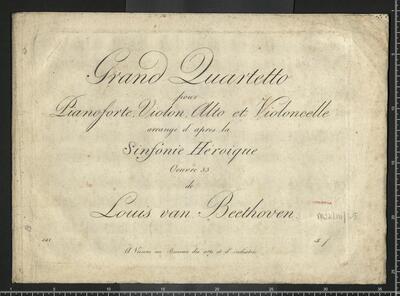 Grand Quartetto
pour
Pianoforte, Violon, Alto et Violoncelle
arrangé d'après la
Sinfonie Héroique
Oeuvre 55
de
Louis van Beethoven.
A Vienne au Bureau des arts et d'industrie.